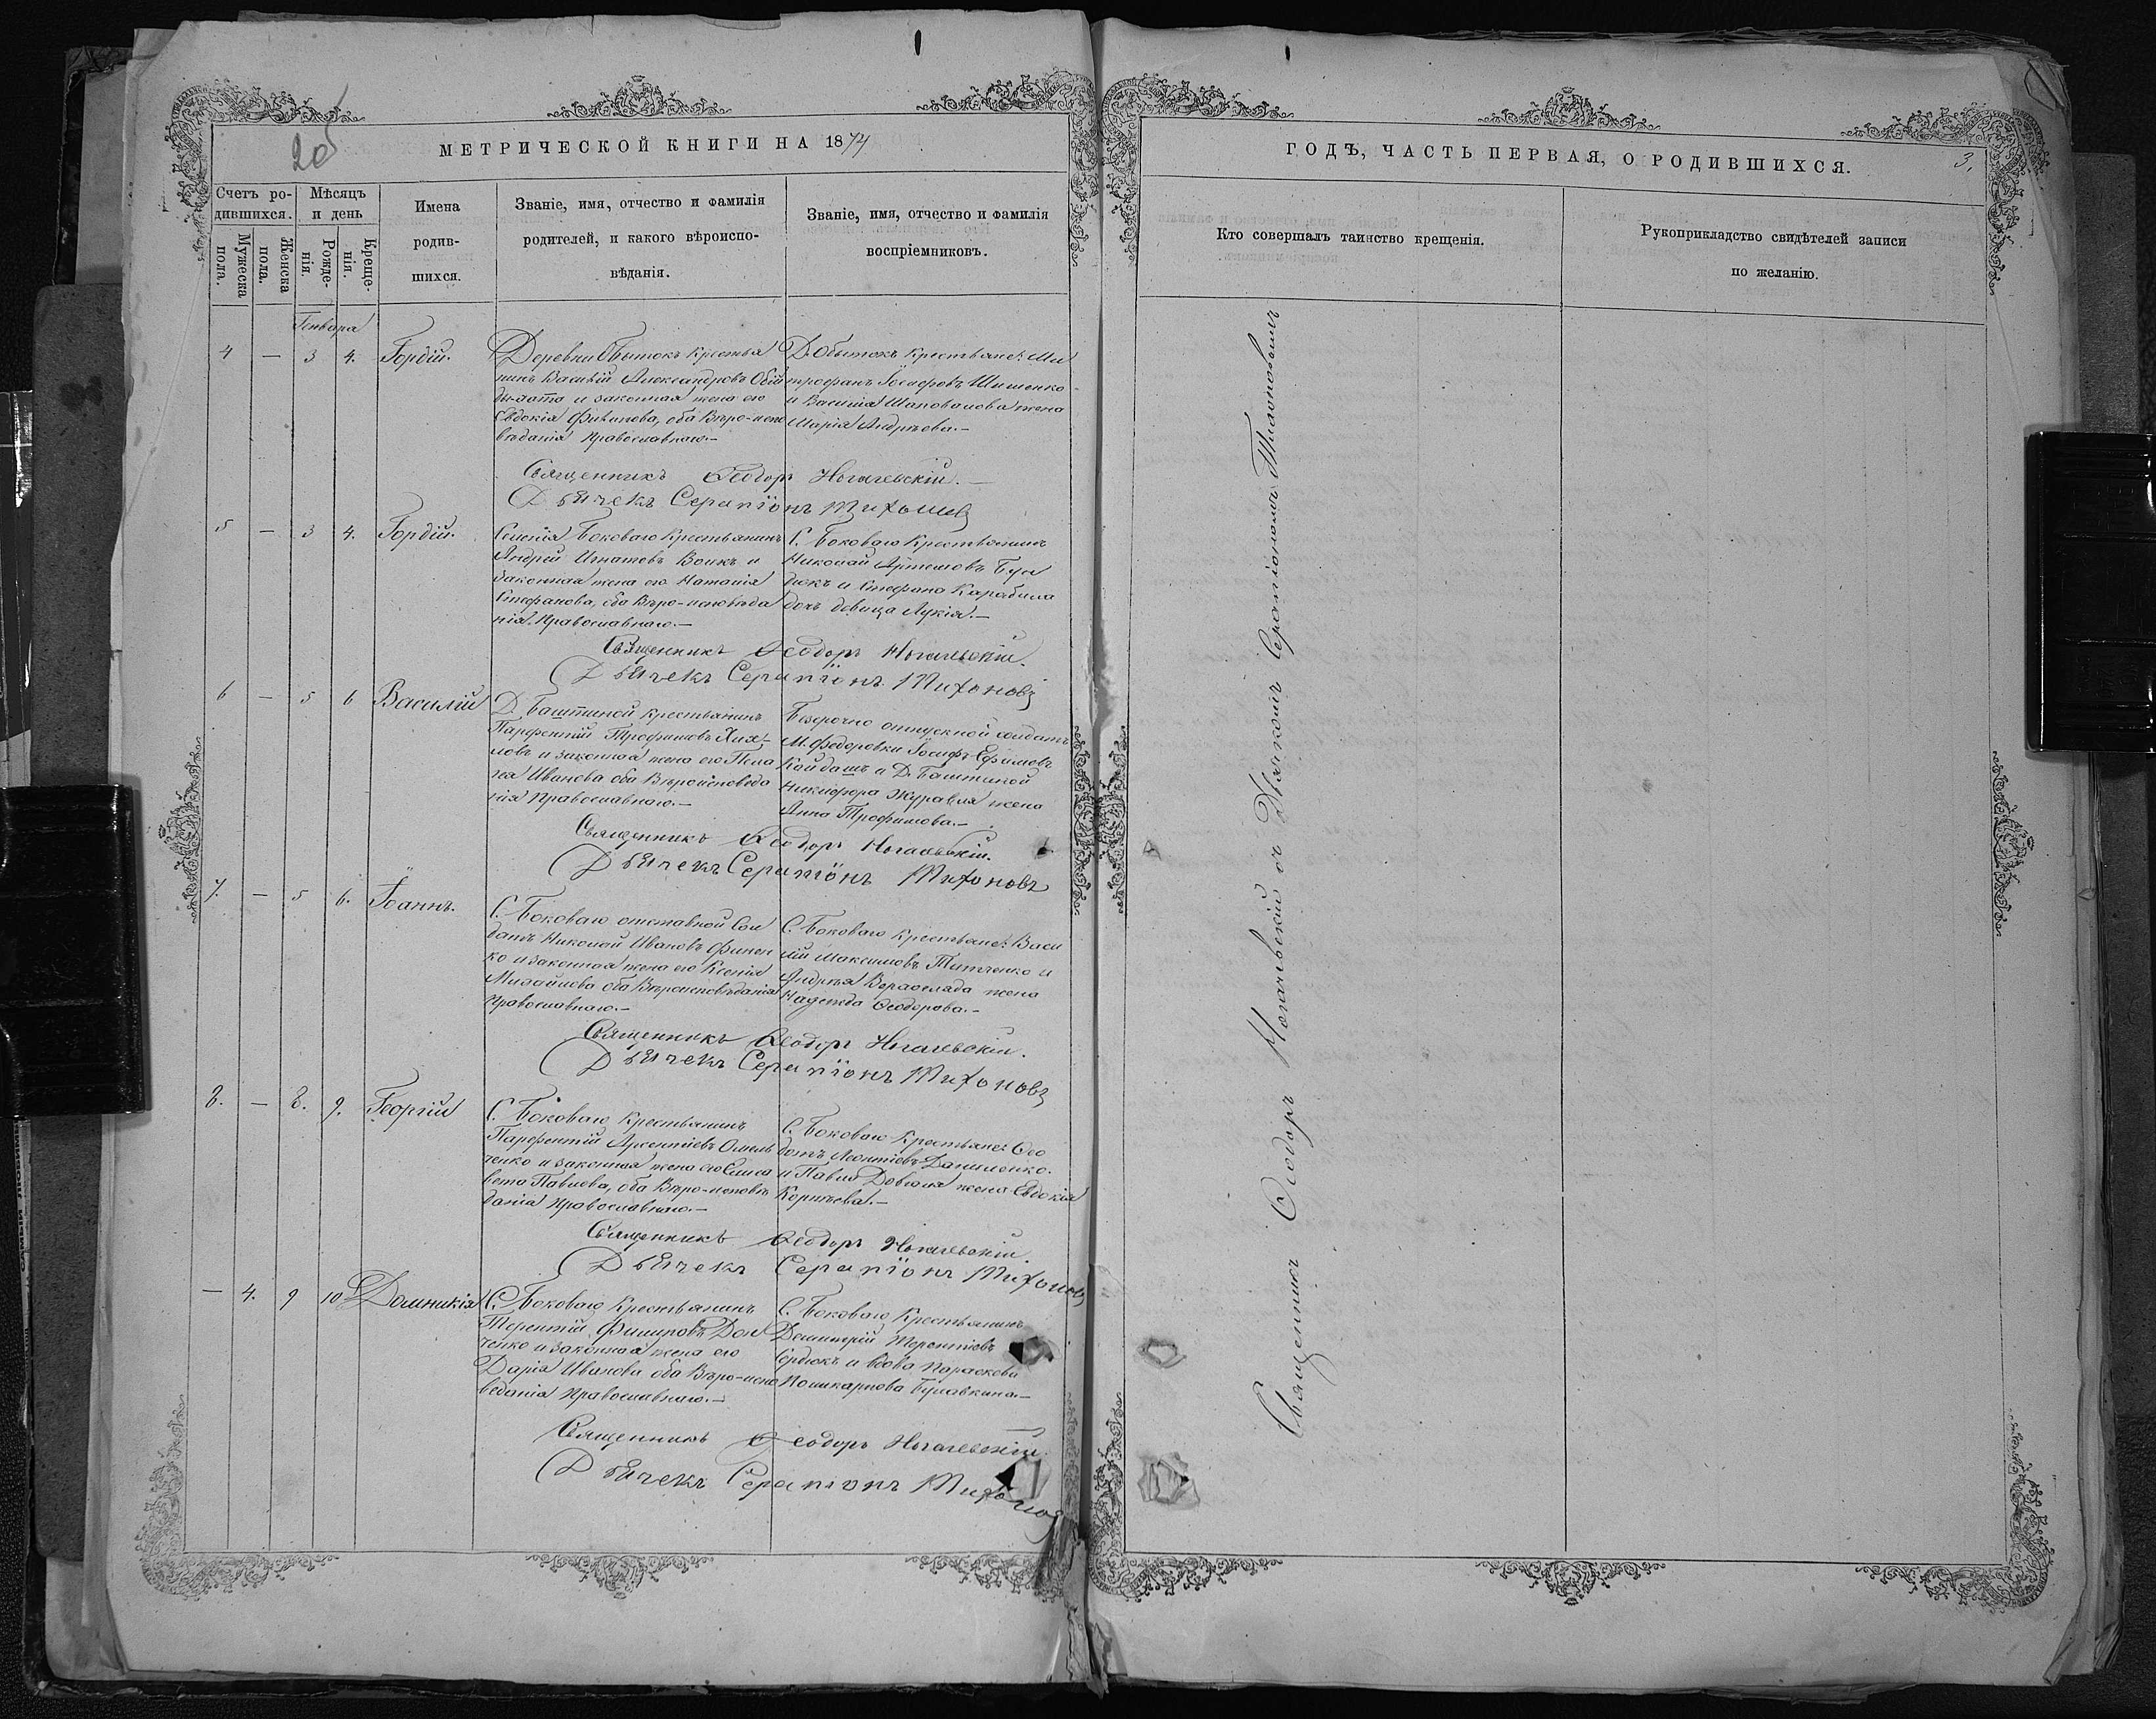 20
МЕТРИЧЕСКОЙ КНИГИ НА 1874
Счетъ ро-
дившихся.
Мужеска
пола.
Женска
пола.
Мѣсяцъ
и день
Рожде-
нія.
Креще-
нія.
Имена
родив-
шихся.
Званіе, имя, отчество и фамилія
родителей, и какого вѣроиспо-
вѣданія.
Званіе, имя, отчество и фамилія
воспріемниковъ.
Генваря
4 — 3 4. Гордій.
Деревни Обытокъ крестья
нинъ Василій Александровъ
и законная жена его
Евдокія Филипова, оба Вѣро-испо
вѣданія Православнаго.—
Д. Обытокъ крестьяне: Ми
трофанъ Іосифовъ Шишенко
и Василія Шаповалова жена
Марія Андрѣева.—
Священникъ Ѳеодоръ Ногачевскій.—
Дьячекъ Серапіонъ Тихоновъ
5 — 3 4. Гордій.
Селенія Боковаго Крестьянинъ
Андрей Игнатовъ Волкъ и
законная жена его Наталія
Стефанова, оба Вѣро-исповѣда
нія Православнаго.—
С. Боковаго Крестьянинъ
Николай Артемовъ Бун
дюкъ и Стефана Карабина
дочь девица Лукія.—
Священникъ Ѳеодоръ Ногачевскій.
Дьячекъ Серапіонъ Тихоновъ
6 — 5 6 Василій
Д. Баштиной крестьянинъ
Парфентій Трофимовъ Хих-
ловъ и законная жена его Пела
гея Иванова оба Вѣроисповѣда
нія Православнаго.—
Безсрочно отпускной солдатъ
М. Федоровки Іосифъ Ефимовъ
Кайдашъ и Д. Баштиной
Никифора Журавля жена
Анна Трофимова.—
Священникъ Ѳеодоръ Ногачевскій.
Дьячекъ Серапіонъ Тихоновъ
7. — 5 6. Іоаннъ.
С. Боковаго отставной Сол
датъ Николай Ивановъ Финен
ко и законная жена его Ксенія
Михайлова оба Вѣроисповѣданія
Православнаго.—
С. Боковаго Крестьяне: Васи
лій Максимовъ Титченко и
Андрѣя Верасклада жена
Надежда Ѳеодорова.—
Священникъ Ѳеодоръ Ногачевскій.
Дьячекъ Серапіонъ Тихоновъ
8. — 8. 9. Георгій
С. Боковаго Крестьянинъ
Парфентій Арсентіевъ Омель
ченко и законная жена его Елиса
вета Павлова, оба Вѣро-исповѣ
данія Православнаго.—
С. Боковаго Крестьяне: Ѳео
дотъ Леонтіевъ Даниленко.
и Павла Довгаля жена Евдокія
Корнѣева.—
Священникъ Ѳеодоръ Ногачевскій
Дьячекъ Серапіонъ Тихоновъ
— 4. 9 10 Домникія
С. Боковаго Крестьянинъ
Терентій Филиповъ Дол
ченко и законная жена его
Дарія Иванова оба Вѣро-испо
веданія Православнаго.—
С. Боковаго Крестьянинъ
Димитрій Терентіевъ
Сердюкъ и вдова Параскева
Поликарпова Булавкина.—
Священникъ Ѳеодоръ Ногачевскій
Дьячекъ Серапіонъ Тихоновъ
ГОДЪ, ЧАСТЬ ПЕРВАЯ, О РОДИВШИХСЯ.
3,
Кто совершалъ таинство крещенія.
Рукоприкладство свидѣтелей записи
по желанію.
Священникъ Ѳеодоръ Ногачевскій съ Дьячкомъ Серапіономъ Тихоновымъ